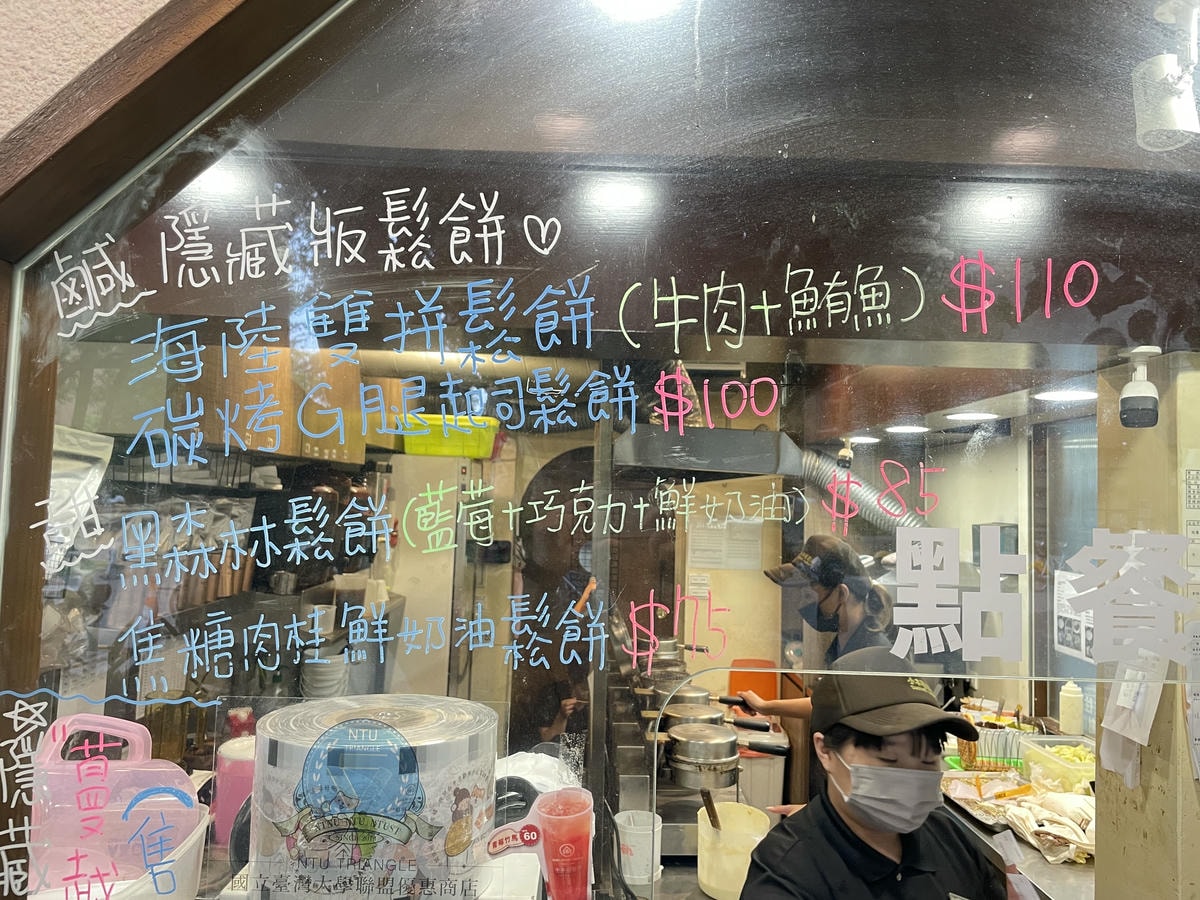 鹹 隱藏版鬆餅♡
海陸雙拼鬆餅(牛肉+鮪魚) $110
碳烤G腿起司鬆餅 $100
甜 黑森林鬆餅(藍莓+巧克力+鮮奶油) $85
焦糖肉桂鮮奶油鬆餅 $75
點餐
☆隱藏
售
NTU
TRIANGLE
NTU TRIANGLE
國立臺灣大學聯盟優惠商店
60